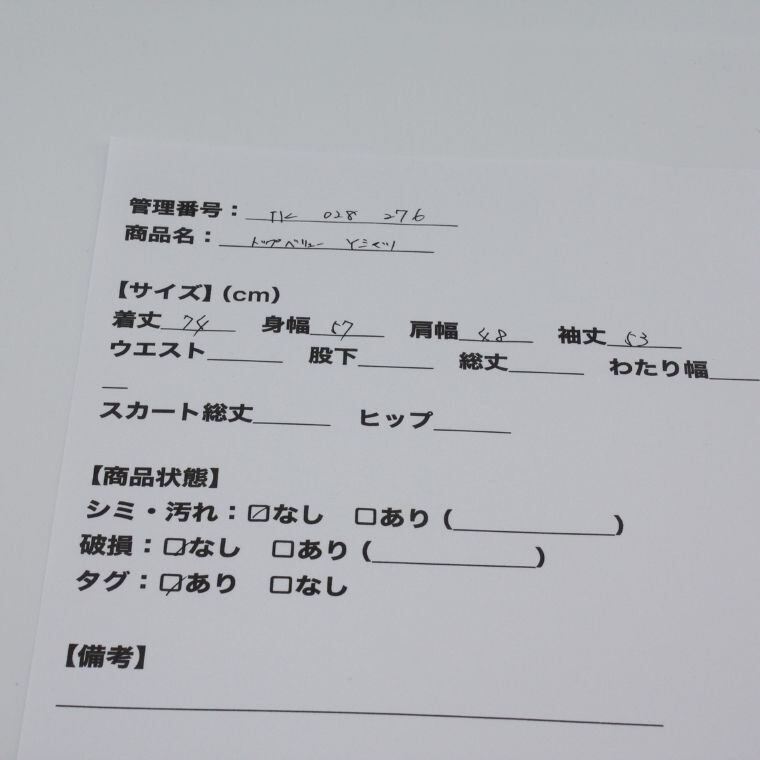 管理番号：TK 028 276
商品名：トップバリュー Yシャツ
【サイズ】(cm)
着丈 74 身幅 57 肩幅 48 袖丈 53
ウエスト______ 股下______ 総丈______ わたり幅____
__
スカート総丈______ ヒップ______
【商品状態】
シミ・汚れ：☑なし □あり (____________)
破損：☑なし □あり (____________)
タグ：☑あり □なし
【備考】